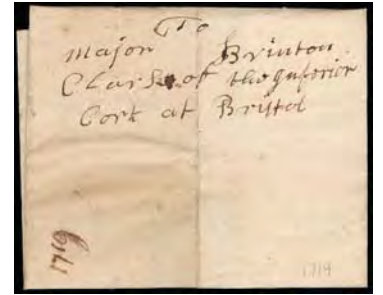 To
Major Brinton
Clark of the Inferior
Cort at Bristol
1719
1719